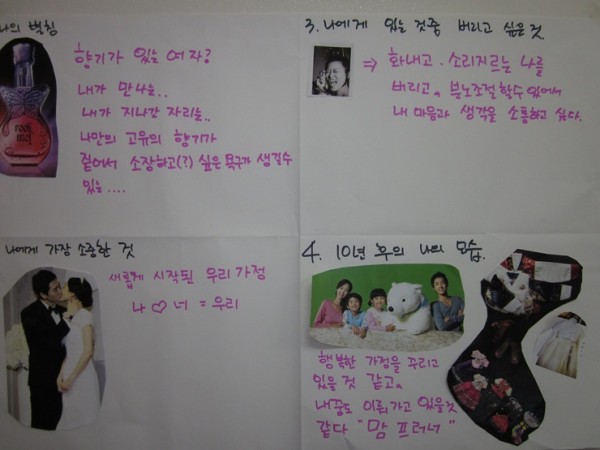 나의 별칭
향기가 있는 여자?
내가 만나는..
내가 지나간 자리는..
나만의 고유의 향기가
짙어서 소장하고(?) 싶은 욕구가 생길수
있는....
3. 나에게 있는 것중 버리고 싶은 것
⇒ 화내고. 소리지르는 나를
버리고. 분노조절할수 있어서
내 마음과 생각을 소통하고 싶다.
나에게 가장 소중한 것
새롭게 시작된 우리 가정
나 ♡ 너 = 우리
4. 10년 후의 나의 모습.
행복한 가정을 꾸리고
있을것 같고.
내꿈도 이뤄가고 있을것
같다 "맘 프러너"